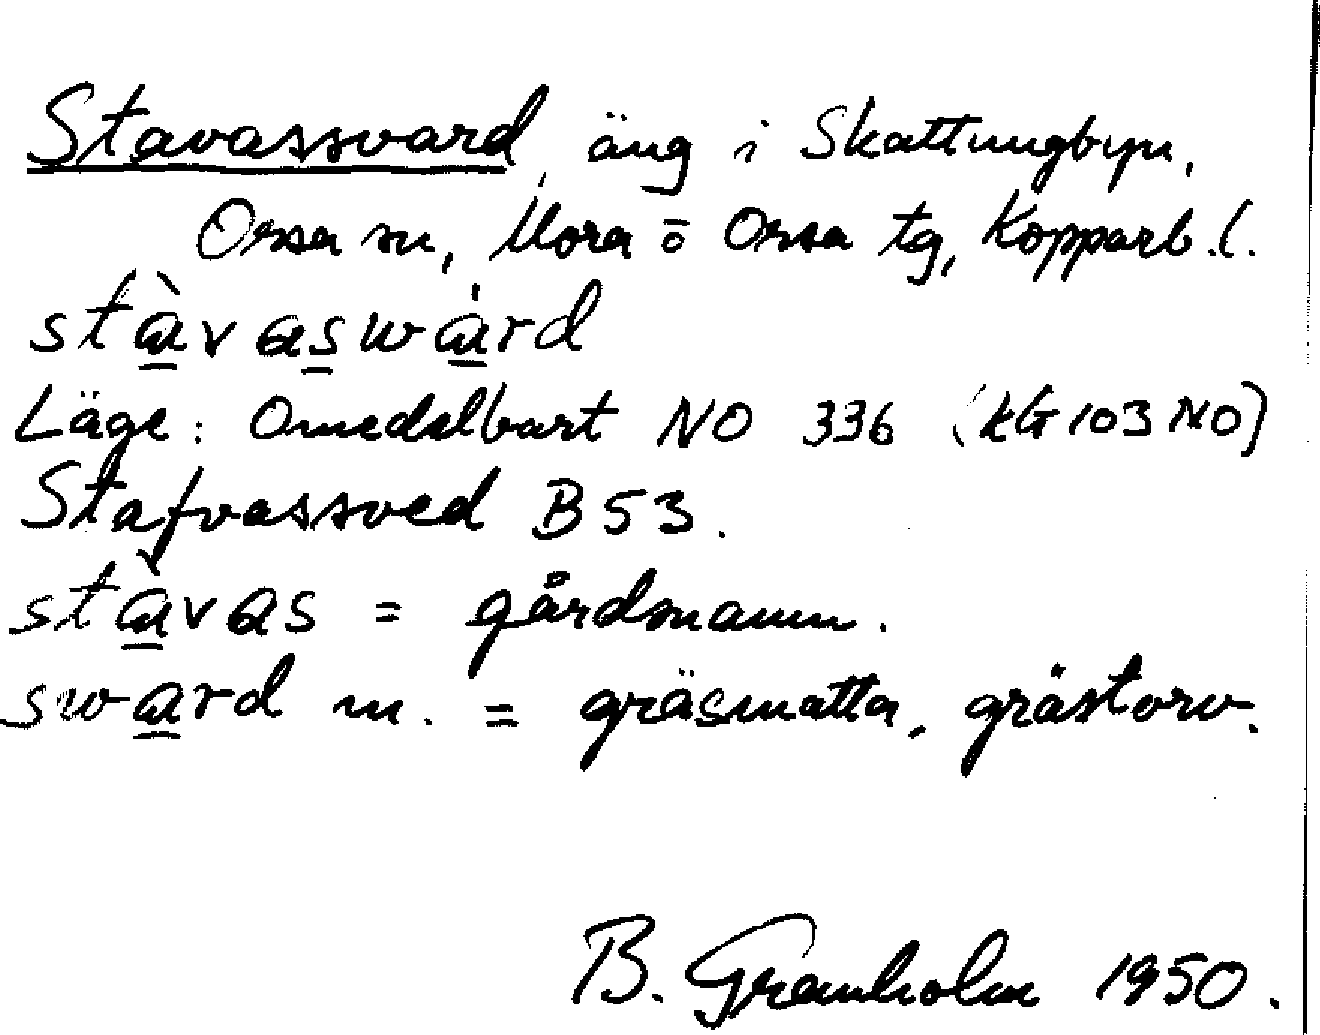 Stavassvard, äng i Skattungbyn,
Orsa sn, Mora o Orsa tg, Kopparb. l.
stàvaswárd
Läge: Omedelbart NO 336 (KG 103 NO)
Stafvassved B 53.
stàvas = gårdsnamn.
sward m. = gräsmatta, grästorv.
B. Granholm 1950.